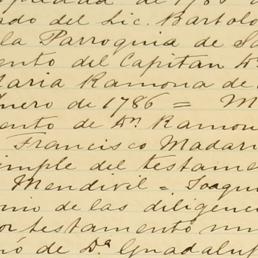 piedad de 1785
ado del Lic. Bartolo
la Parroquia de Sa
ento del Capitan D
Maria Ramona de
Enero de 1786 = M
ento de Dn Ramon
Francisco Madari
imple del testame
Mendivil = Joaqui
onio de las diligenc
or testamento nu
ió de Da Guadalup